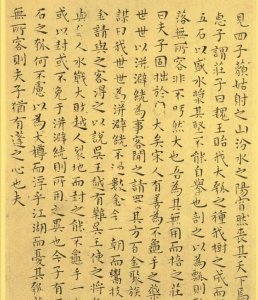 見四子藐姑射之山汾水之陽窅然喪其天下焉
惠子謂莊子曰魏王貽我大瓠之種我樹之成而
五石以盛水漿其堅不能自舉也剖之以為瓢則瓠
落無所容非不呺然大也吾為其無用而掊之莊
曰夫子固拙於大矣宋人有善為不龜手之藥
世世以洴澼絖為事客聞之請買其方百金聚族
謀曰我世世為洴澼絖不過數金今一朝而鬻技
金請與之客得之以說吳王越有難吳王使之將
與越人水戰大敗越人裂地而封之能不龜手一
或以封或不免於洴澼絖則所用之異也今子有
石之瓠何不慮以為大樽而浮乎江湖而憂其瓠
無所容則夫子猶有蓬之心也夫